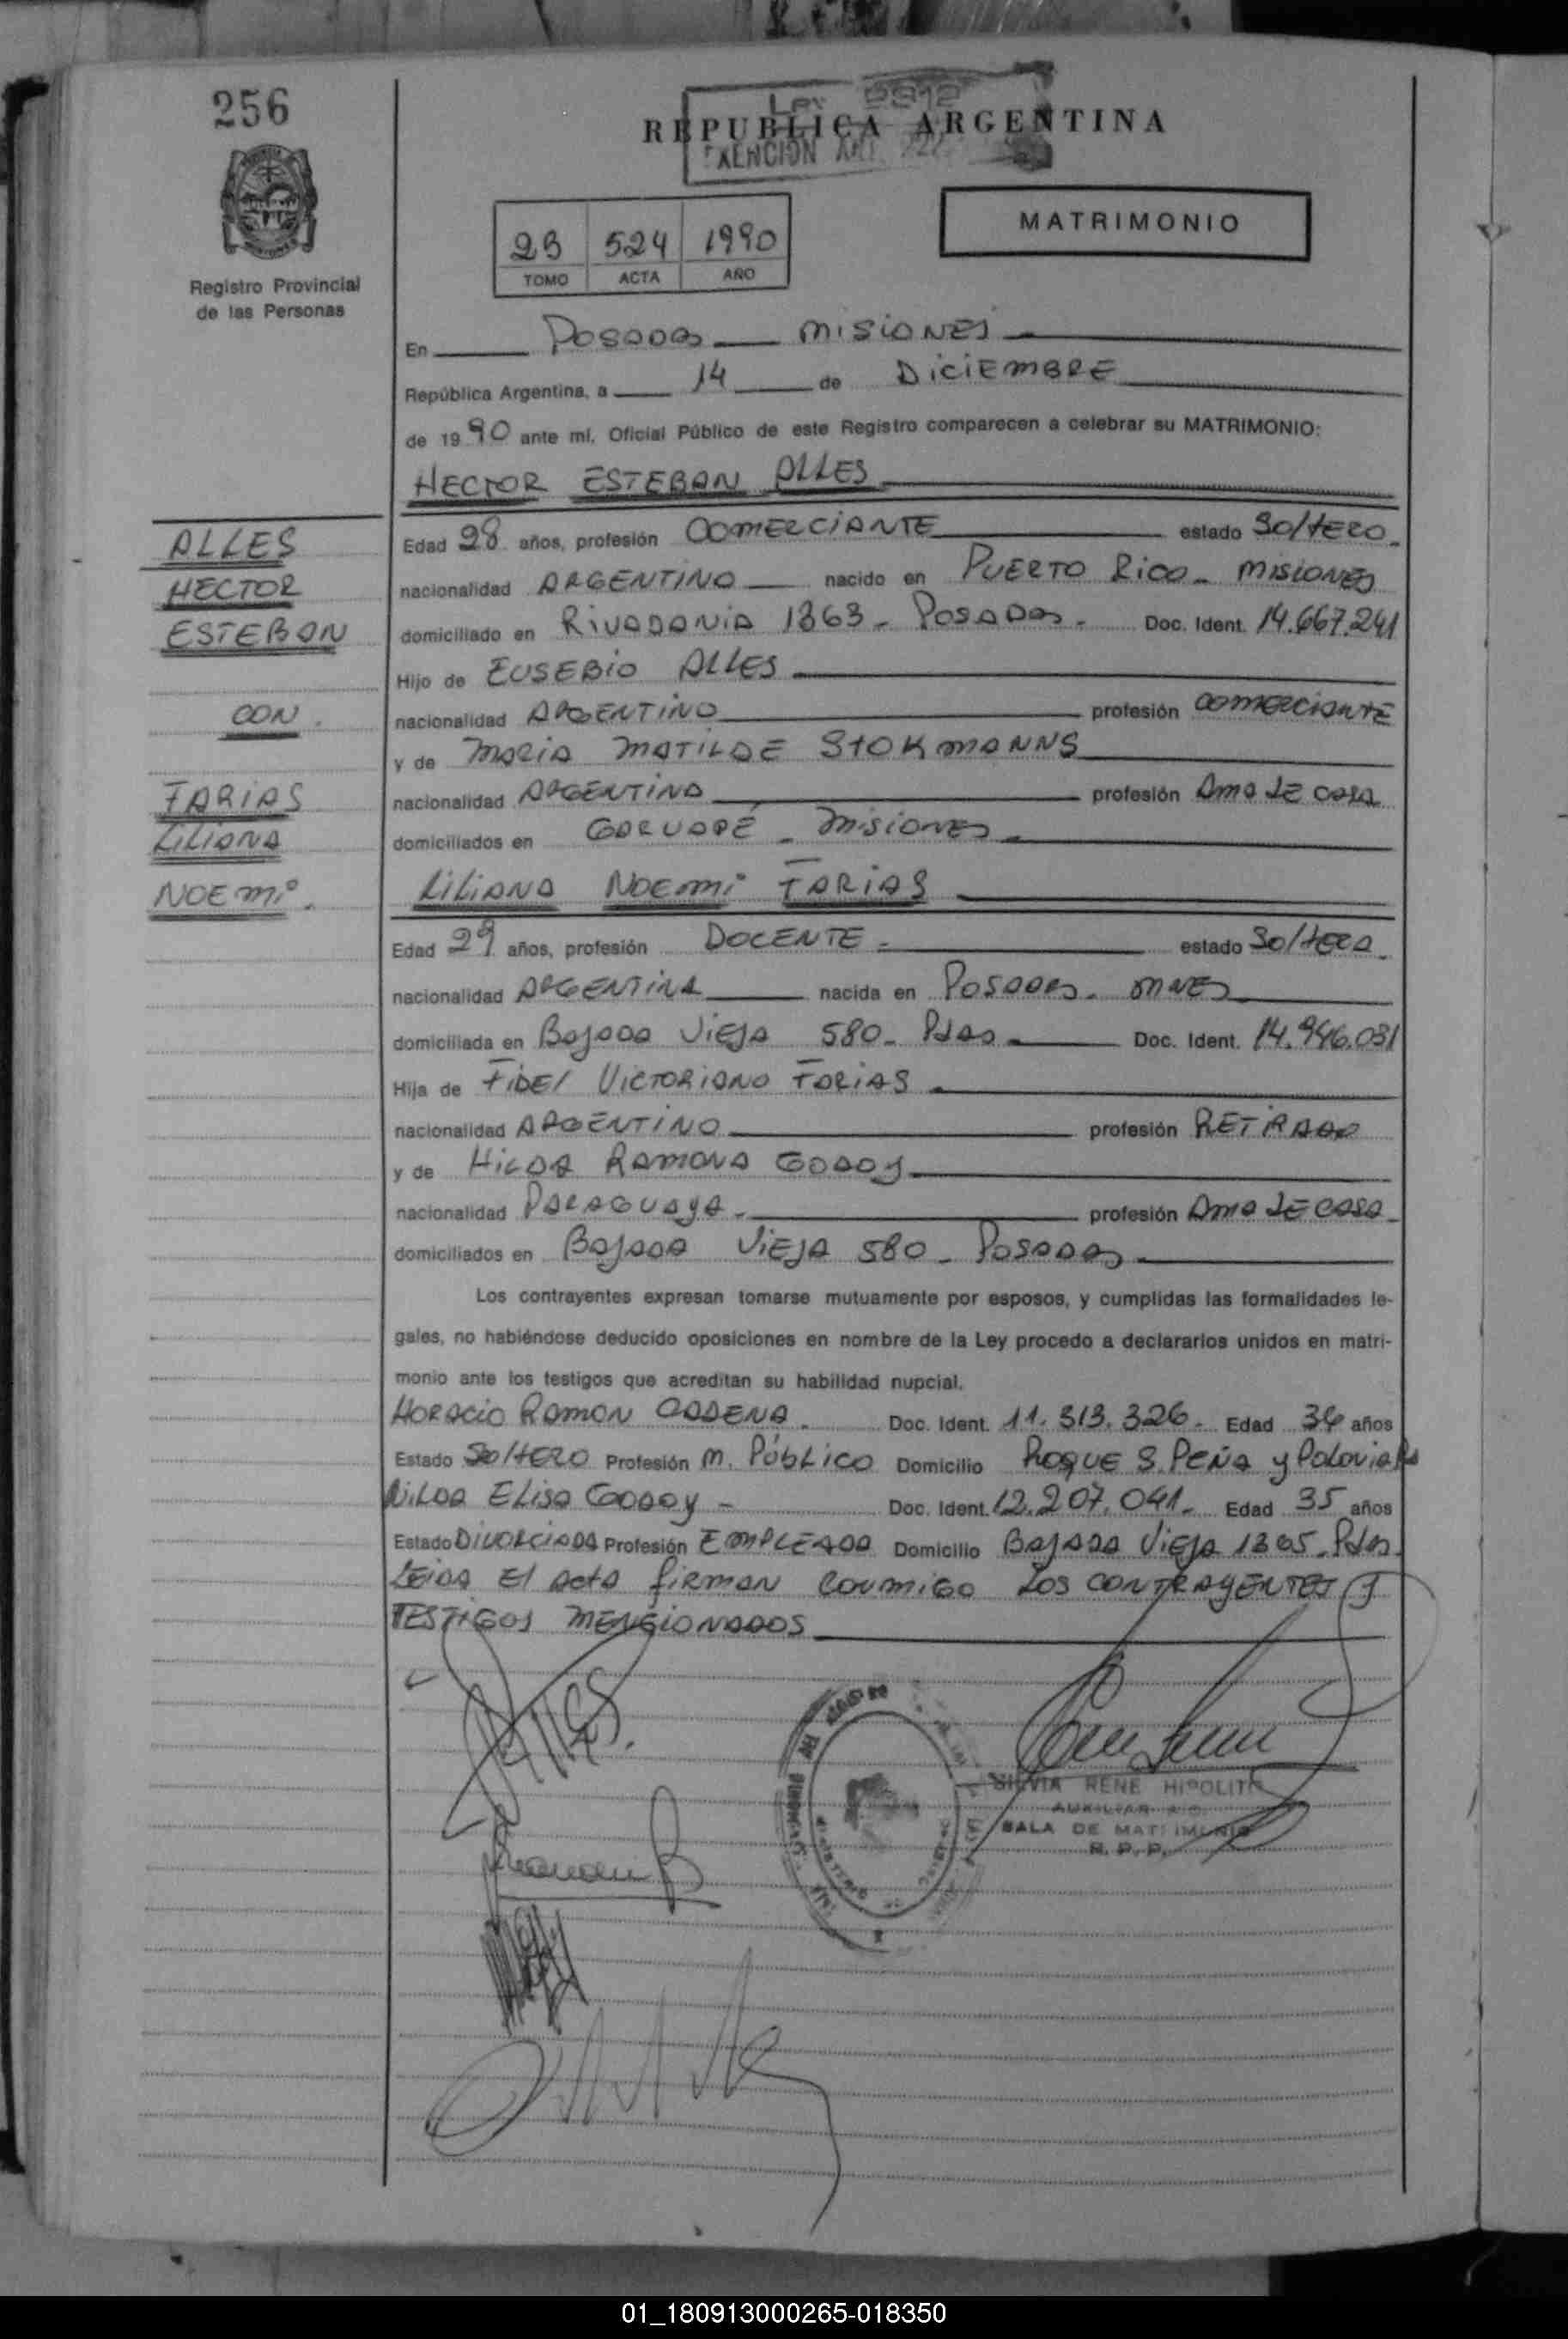 256
Ley 2912
REPUBLICA ARGENTINA
MATRIMONIO
23 524 1990
TOMO ACTA AÑO
Registro Provincial
de las Personas
En POSADAS MISIONES
República Argentina, a 14 de DICIEMBRE
de 1990 ante mí, Oficial Público de este Registro comparecen a celebrar su MATRIMONIO:
HECTOR ESTEBAN ALLES
ALLES
HECTOR
ESTEBAN
CON.
FARIAS
LILIANA
NOEMI.
Edad 28 años, profesión COMERCIANTE estado Soltero.
nacionalidad ARGENTINO nacido en PUERTO RICO - MISIONES
domiciliado en RIVADAVIA 1363 - POSADAS - Doc. Ident. 14.667.241
Hijo de EUSEBIO ALLES
nacionalidad ARGENTINO profesión COMERCIANTE
y de MARIA MATILDE STOKMANNS
nacionalidad ARGENTINA profesión AMA DE CASA
domiciliados en GARUAPÉ - MISIONES -
LILIANA NOEMI FARIAS
Edad 29 años, profesión DOCENTE - estado Soltera.
nacionalidad ARGENTINA nacida en POSADAS - MNES
domiciliada en BAJADA VIEJA 580 - Pdas Doc. Ident. 14.946.031
Hija de FIDEL VICTORIANO FARIAS
nacionalidad ARGENTINO profesión RETIRADO
y de HILDA RAMONA GODOY
nacionalidad PARAGUAYA - profesión AMA DE CASA
domiciliados en BAJADA VIEJA 580 - POSADAS
Los contrayentes expresan tomarse mutuamente por esposos, y cumplidas las formalidades le-
gales, no habiéndose deducido oposiciones en nombre de la Ley procedo a declararlos unidos en matri-
monio ante los testigos que acreditan su habilidad nupcial.
HORACIO RAMON CADENA. Doc. Ident. 11.313.326 - Edad 36 años
Estado SOLTERO Profesión M. PÚBLICO Domicilio ROQUE S. PEÑA y
NILDA ELISA GODOY - Doc. Ident. 12.207.041 - Edad 35 años
Estado DIVORCIADA Profesión EMPLEADA Domicilio BAJADA VIEJA 1305 - Pdas.
LEIDA EL ACTA FIRMAN CONMIGO LOS CONTRAYENTES Y
TESTIGOS MENCIONADOS
Alles.
SILVIA RENE HIPOLITO
AUXILIAR
SALA DE MATRIMONIO
R. P. P.
01_180913000265-018350